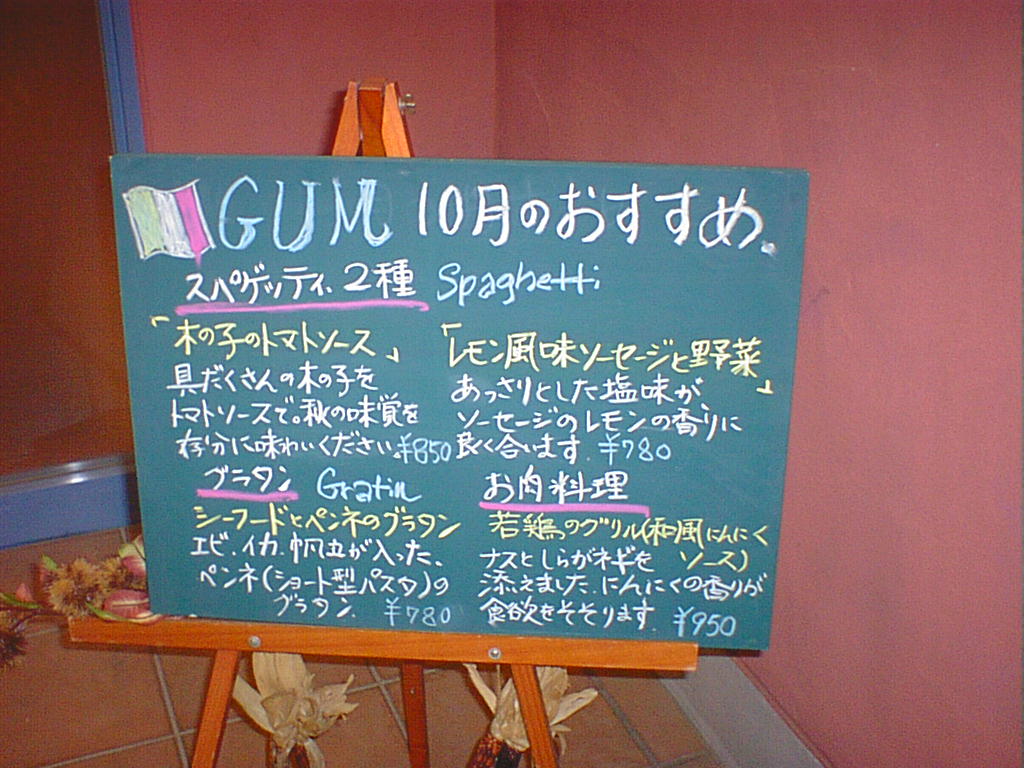 GUM 10月のおすすめ。
スパゲッティ. 2種 Spaghetti
「木の子のトマトソース」
具だくさんの木の子を
トマトソースで。秋の味覚を
存分に味わいください。¥850
「レモン風味ソーセージと野菜」
あっさりとした塩味が
ソーセージのレモンの香りに
良く合います. ¥780
グラタン Gratin
シーフードとペンネのグラタン
エビ.イカ.帆立が入った、
ペンネ(ショート型パスタ)の
グラタン. ¥780
お肉料理
若鶏のグリル(和風にんにく
ソース)
ナスとしらがネギを
添えました.にんにくの香りが
食欲をそそります. ¥950